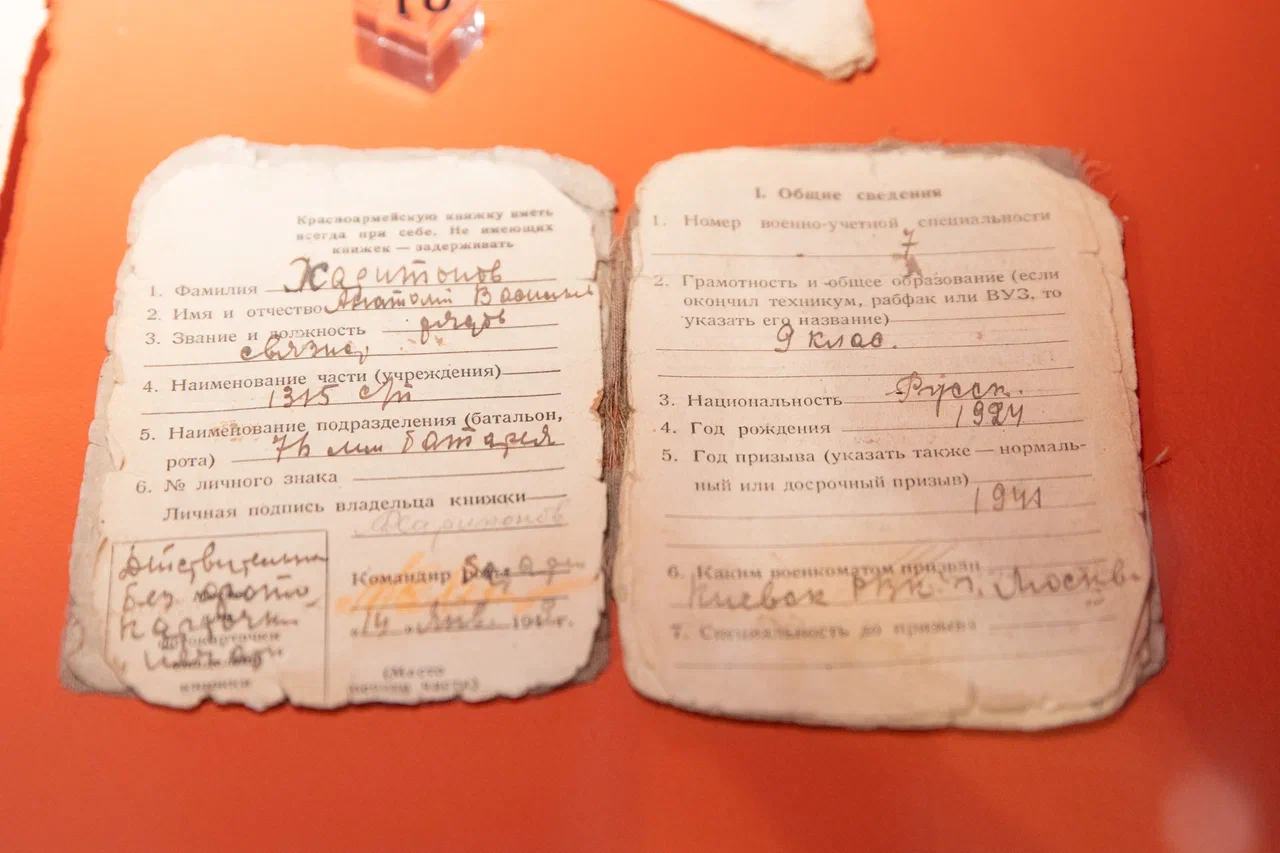 10
Красноармейскую книжку иметь
всегда при себе. Не имеющих
книжек — задерживать
1. Фамилия Харитонов
2. Имя и отчество Анатолий Василье
3. Звание и должность рядов
связис
4. Наименование части (учреждения)
1315 с/п
5. Наименование подразделения (батальон,
рота) 76 мм батарея
6. № личного знака
Личная подпись владельца книжки
Харитонов
Действительна
без фото
карточки
Командир
14 янв. 194 г.
(Место
печати части)
книжки
I. Общие сведения
1. Номер военно-учетной специальности
7
2. Грамотность и общее образование (если
окончил техникум, рабфак или ВУЗ, то
указать его название)
9 клас.
3. Национальность Русск.
4. Год рождения 1924
5. Год призыва (указать также — нормаль-
ный или досрочный призыв)
1941
6. Каким военкоматом призван
Киевск РВК г. Москв.
7. Специальность до призыва